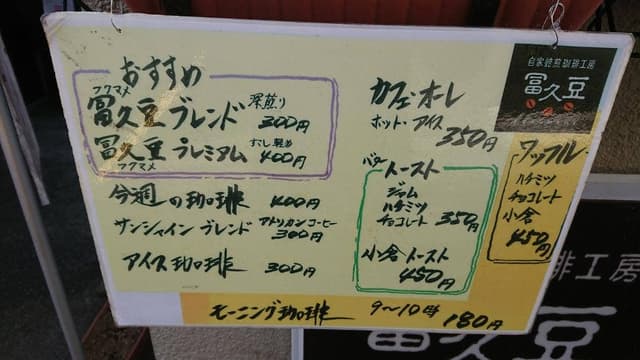 おすすめ
フクマメ
冨久豆ブレンド 深煎り 300円
冨久豆プレミアム 少し軽め 400円
フクマメ
今週の珈琲 400円
サンシャインブレンド アトリカンコーヒー 300円
アイス珈琲 300円
カフェ・オーレ
ホット・アイス 350円
バタートースト
ジャム
ハチミツ
チョコレート 350円
小倉トースト
450円
自家焙煎珈琲工房
冨久豆
ワッフル
ハチミツ
チョコレート
小倉
450円
モーニング珈琲 9〜10時 180円
琲工房
冨久豆